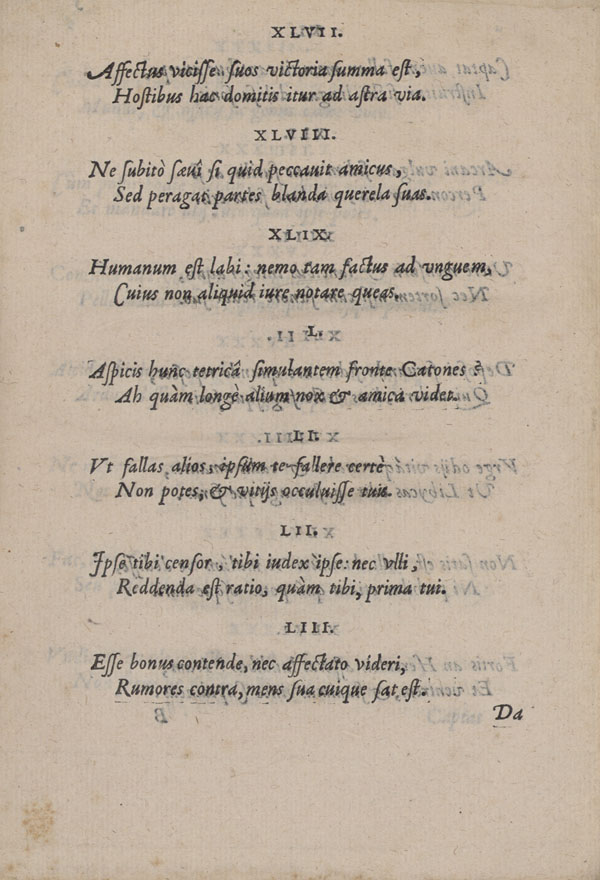 XLVII.
Affectus vicisse suos victoria summa est,
Hostibus hac domitis itur ad astra via.
XLVIII.
Ne subitò sævi si quid peccauit amicus,
Sed peragat partes blanda querela suas.
XLIX.
Humanum est labi: nemo tam factus ad vnguem,
Cuius non aliquid iure notare queas.
L.
Aspicis hunc tetricâ simulantem fronte Catones?
Ah quàm longè alium nox & amica videt.
LI.
Vt fallas alios, ipsum te fallere certè
Non potes, & vitijs occuluisse tuis.
LII.
Ipse tibi censor, tibi iudex ipse: nec vlli,
Reddenda est ratio, quàm tibi, prima tui.
LIII.
Esse bonus contende, nec affectato videri,
Rumores contra, mens sua cuique sat est.
Da